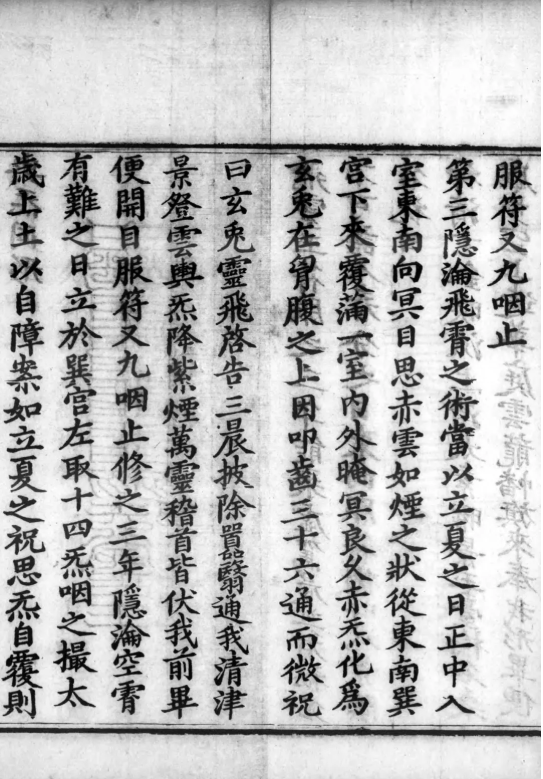 服符又九咽止
第三隱淪飛霄之術當以立夏之日正中入
室東南向冥目思赤雲如煙之狀從東南巽
宮下來覆滿一室內外晻冥良久赤炁化爲
玄兎在胷腹之上因叩齒三十六通而微祝
曰玄兎靈飛啓告三晨披除嚚翳通我清津
景登雲輿炁降紫煙萬靈稽首皆伏我前畢
便開目服符又九咽止修之三年隱淪空霄
有難之日立於巽宮左取十四炁咽之撮太
歲上土以自障案如立夏之祝思炁自覆則